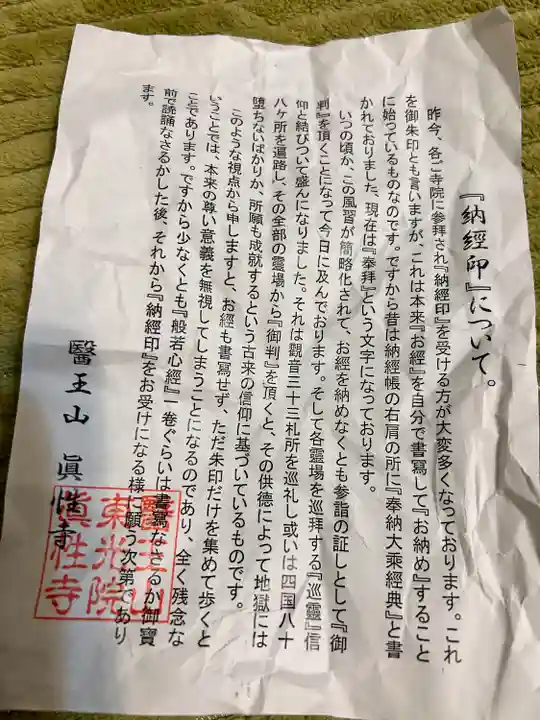 『納經印』について。
昨今、各ご寺院に参拝され『納經印』を受ける方が大変多くなっております。これ
を御朱印とも言いますが、これは本来『お經』を自分で書寫して『お納め』すること
に始っているものなのです。ですから昔は納經帳の右肩の所に『奉納大乘經典』と書
かれておりました。現在は『奉拜』という文字になっております。
いつの頃か、この風習が簡略化されて、お經を納めなくとも参詣の証しとして『御
判』を頂くことになって今日に及んでおります。そして各靈場を巡拜する『巡靈』信
仰と結びついて盛んになりました。それは觀音三十三札所を巡礼し或いは四国八十
八ヶ所を遍路し、その全部の霊場から『御判』を頂くと、その供德によって地獄には
墮ちないばかりか、所願も成就するという古来の信仰に基づいているものです。
このような視点から申しますと、お經も書寫せず、ただ朱印だけを集めて歩くと
いうことでは、本来の尊い意義を無視してしまうことになるのであり、全く残念な
ことであります。ですから少なくとも『般若心經』一巻ぐらいは書寫なさるか御寶
前で読誦なさるかした後、それから『納經印』をお受けになる様に願う次第であり
ます。
醫王山 眞性寺
醫王山
東光院
眞性寺